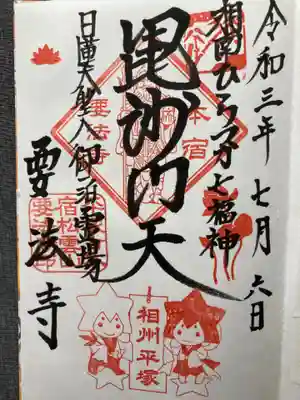 令和三年七月六日
湘南ひらつか七福神
毘沙門天
日蓮大聖人御泊霊場
要法寺
本宿
要法寺
相州平塚